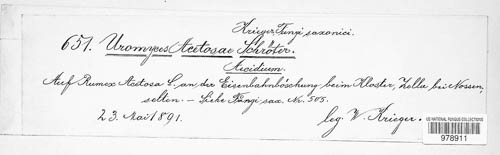 Krieger Fungi saxonici.
651. Uromyces Acetosae Schröter.
Aecidium.
Auf Rumex Acetosa L. an der Eisenbahnböschung beim Kloster, Zella bei Nossen,
selten. — Siehe Fungi sax. Nr. 505.
23. Mai 1891. leg. W. Krieger.
US NATIONAL FUNGUS COLLECTIONS
978911